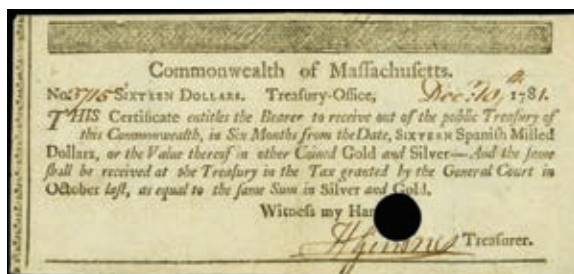 Commonwealth of Massachusetts.
No. 3715 SIXTEEN DOLLARS. Treasury-Office, Decr. 10th, 1781.
THIS Certificate entitles the Bearer to receive out of the public Treasury of
this Commonwealth, in Six Months from the Date, SIXTEEN Spanish Milled
Dollars, or the Value thereof in other Coined Gold and Silver—And the same
shall be received at the Treasury in the Tax granted by the General Court in
October last, as equal to the same Sum in Silver and Gold.
Witness my Han
Treasurer.